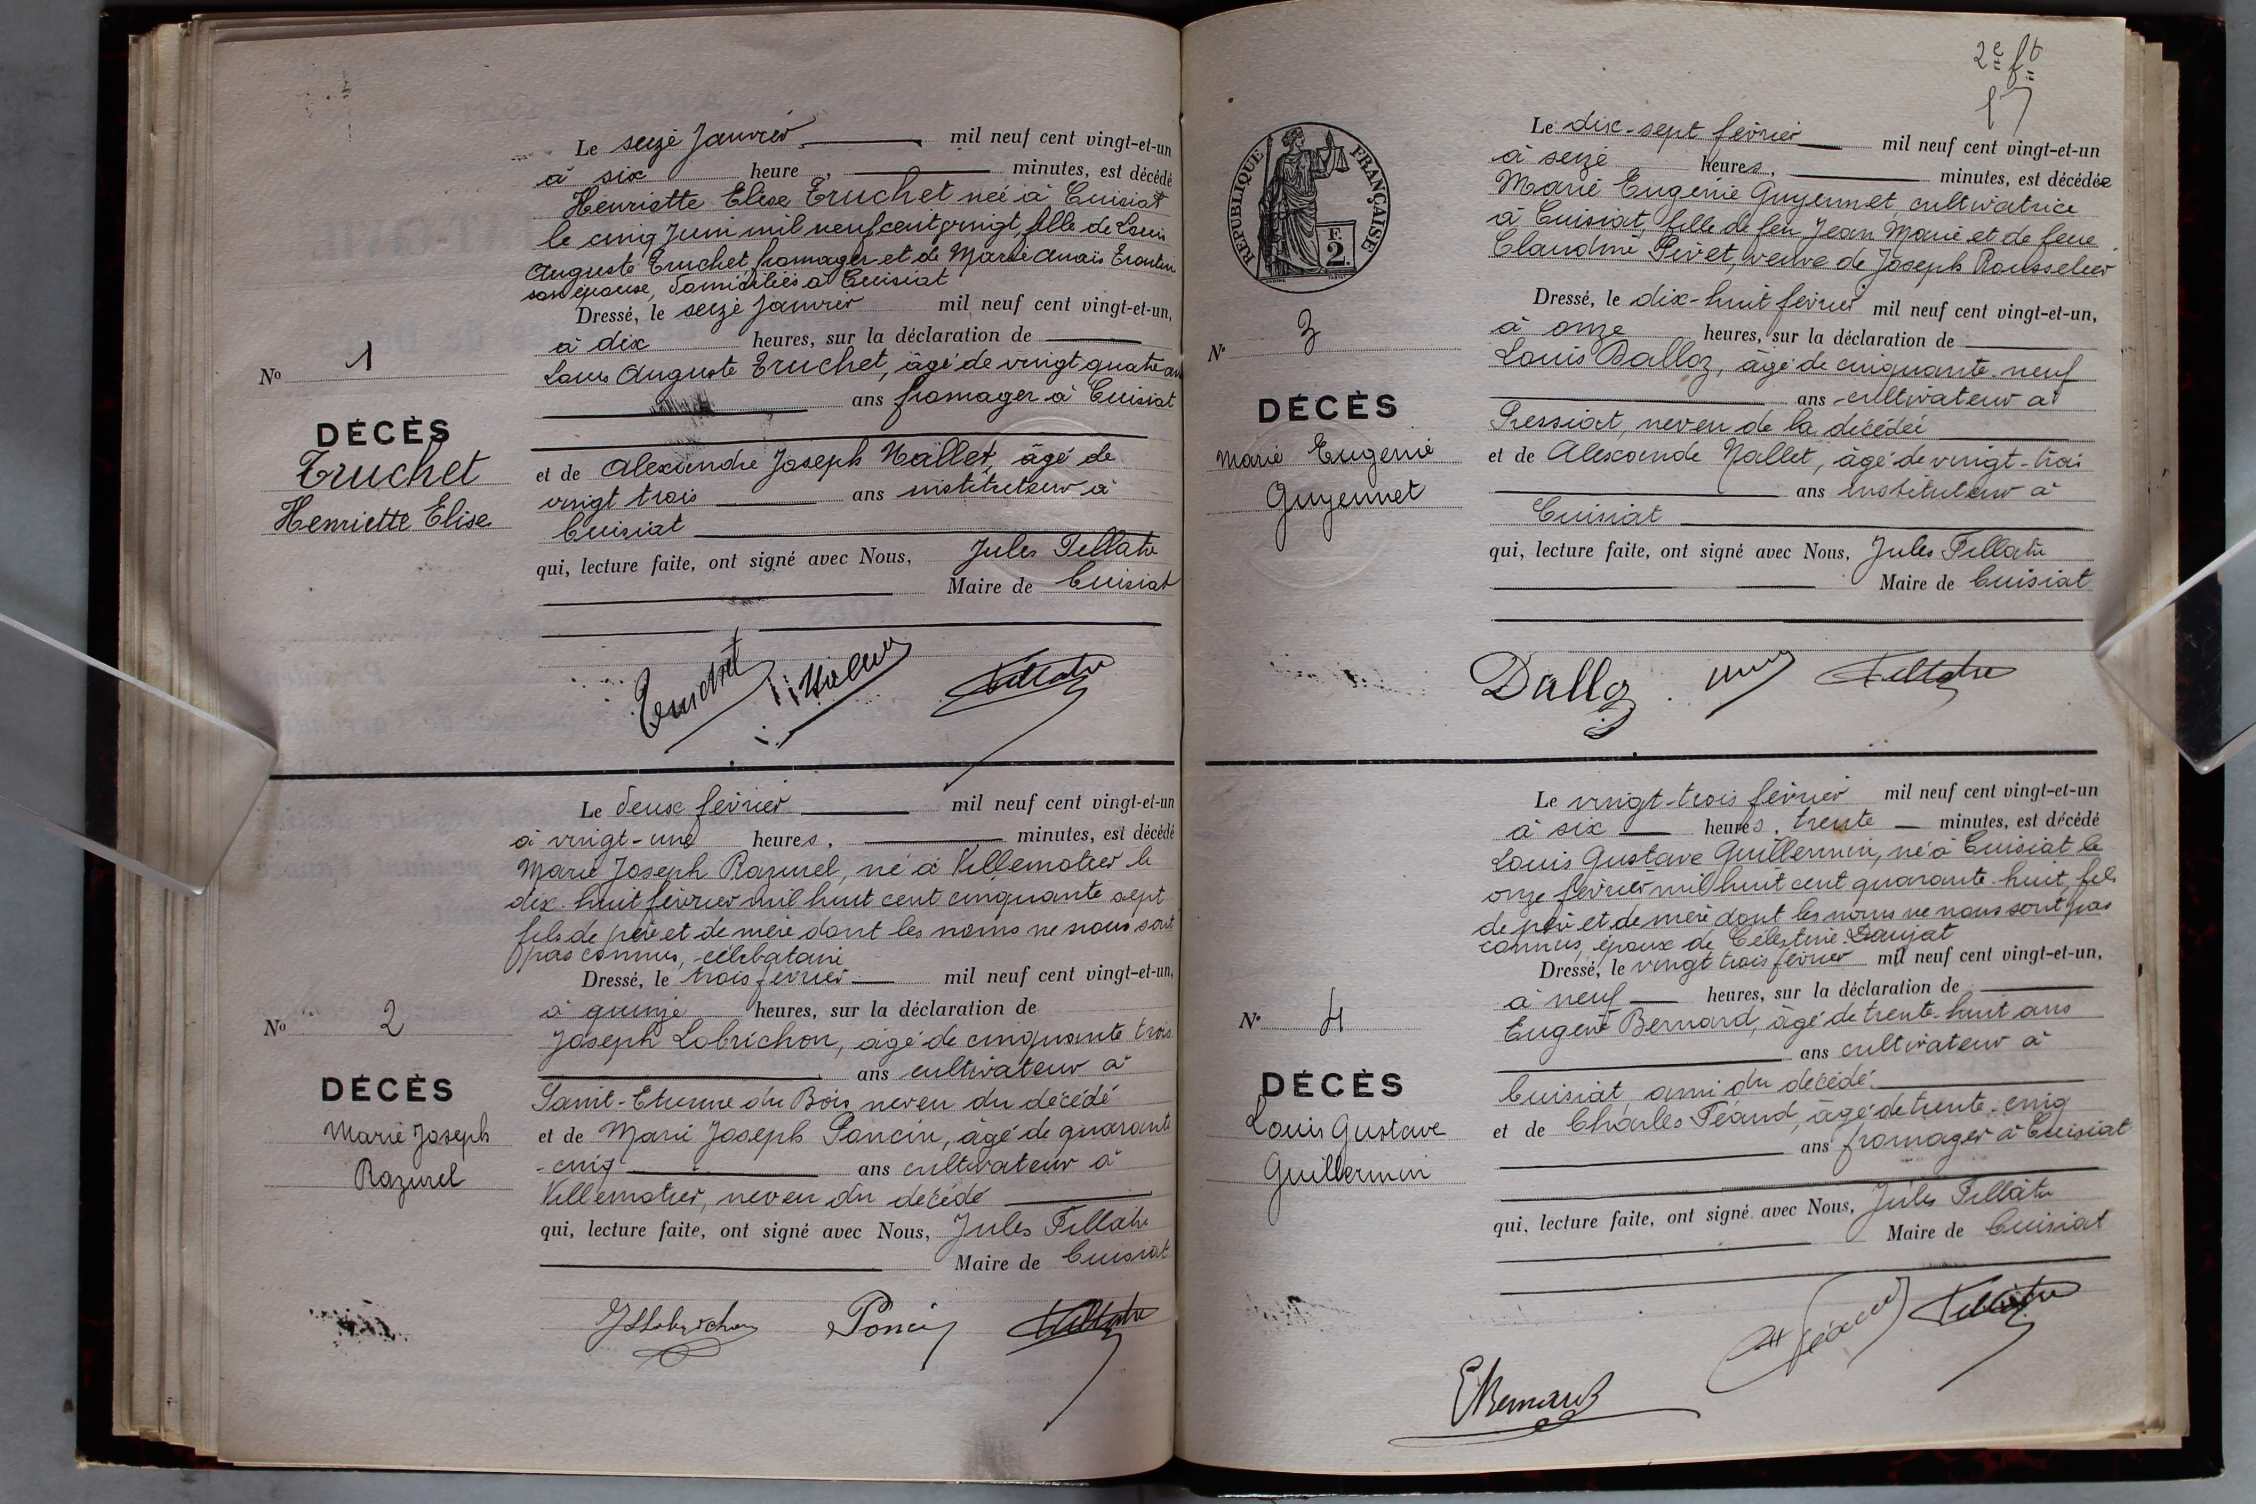 Le seize Janvier mil neuf cent vingt-et-un
à six heure, minutes, est décédé
Henriette Elise Truchet née à Cuisiat
le cinq Juin mil neuf cent vingt, fille de Louis
Auguste Truchet, fromager et de Marie Anais
son épouse, domiciliés à Cuisiat
Dressé, le seize Janvier mil neuf cent vingt-et-un,
à dix heures, sur la déclaration de
Louis Auguste Truchet, âgé de vingt quatre ans
ans fromager à Cuisiat
No 1
DÉCÈS
Truchet
Henriette Elise
et de Alexandre Joseph Nallet, âgé de
vingt trois ans instituteur à
Cuisiat
qui, lecture faite, ont signé avec Nous, Jules Tillatre
Maire de Cuisiat
Truchet
Le deux février mil neuf cent vingt-et-un
à vingt-une heures, minutes, est décédé
Marie Joseph Razurel, né à Villemotier le
dix-huit février mil huit cent cinquante sept
fils de père et de mère dont les noms ne nous sont
pas connus, célibataire
Dressé, le trois fevrier mil neuf cent vingt-et-un,
à quinze heures, sur la déclaration de
Joseph Lobrichon, âgé de cinquante trois
ans cultivateur à
No 2
DÉCÈS
Marie Joseph
Razurel
Saint-Etienne du Bois neveu du décédé
et de Marie Joseph Poncin, âgé de quarante
-cinq ans cultivateur à
Villemotier, neveu du décédé
qui, lecture faite, ont signé avec Nous, Jules Tillatre
Maire de Cuisiat
JLobrichon Poncin Tillatre
2e ft
17
RÉPUBLIQUE FRANÇAISE
F.
2.
Le dix-sept février mil neuf cent vingt-et-un
à seize heures, minutes, est décédée
Marie Eugenie Guyennet, cultivatrice
à Cuisiat, fille de feu Jean Marie et de feue
Claudine Pivet, veuve de Joseph Rousselier
Dressé, le dix-huit février mil neuf cent vingt-et-un,
à onze heures, sur la déclaration de
Louis Dalloz, âgé de cinquante-neuf
ans cultivateur à
N° 3
DÉCÈS
Marie Eugenie
Guyennet
Pressiat, neveu de la décédée
et de Alexandre Nallet, âgé de vingt-trois
ans instituteur à
Cuisiat
qui, lecture faite, ont signé avec Nous, Jules Tillatre
Maire de Cuisiat
Dalloz Tillatre
Le vingt-trois février mil neuf cent vingt-et-un
à six heures, trente minutes, est décédé
Louis Gustave Guillermin, né à Cuisiat le
onze février mil huit cent quarante-huit, fils
de père et de mère dont les noms ne nous sont pas
connus, époux de Célestine Daujat
Dressé, le vingt trois février mil neuf cent vingt-et-un,
à neuf heures, sur la déclaration de
Eugene Bernard, âgé de trente-huit ans
ans cultivateur à
N° 4
DÉCÈS
Louis Gustave
Guillermin
Cuisiat, ami du décédé.
et de Charles Féaud, âgé de trente-cinq
ans fromager à Cuisiat
qui, lecture faite, ont signé avec Nous, Jules Tillatre
Maire de Cuisiat
EBernard Ch Féaud Tillatre